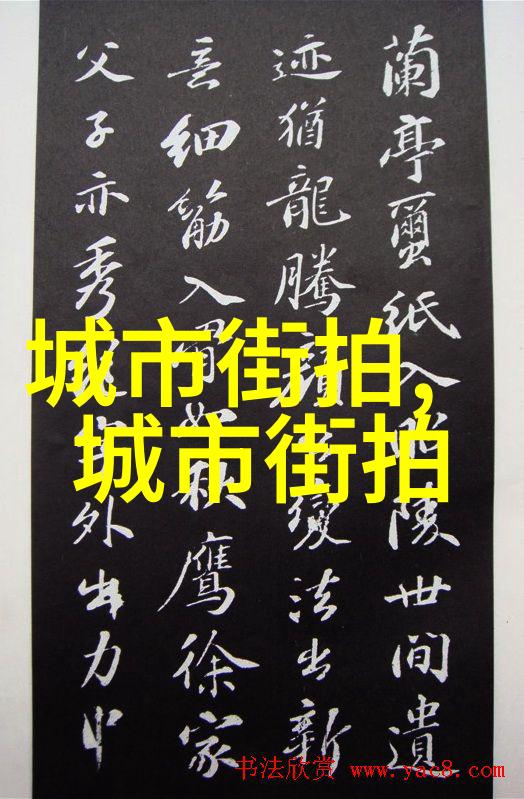 蘭亭蠒紙入昭陵世間遺
迹猶龍騰變法出新
意細筋入骨如秋鷹徐家
父子亦秀外出力中
城市街拍,
城市街拍
书法欣赏 www.yac8.com